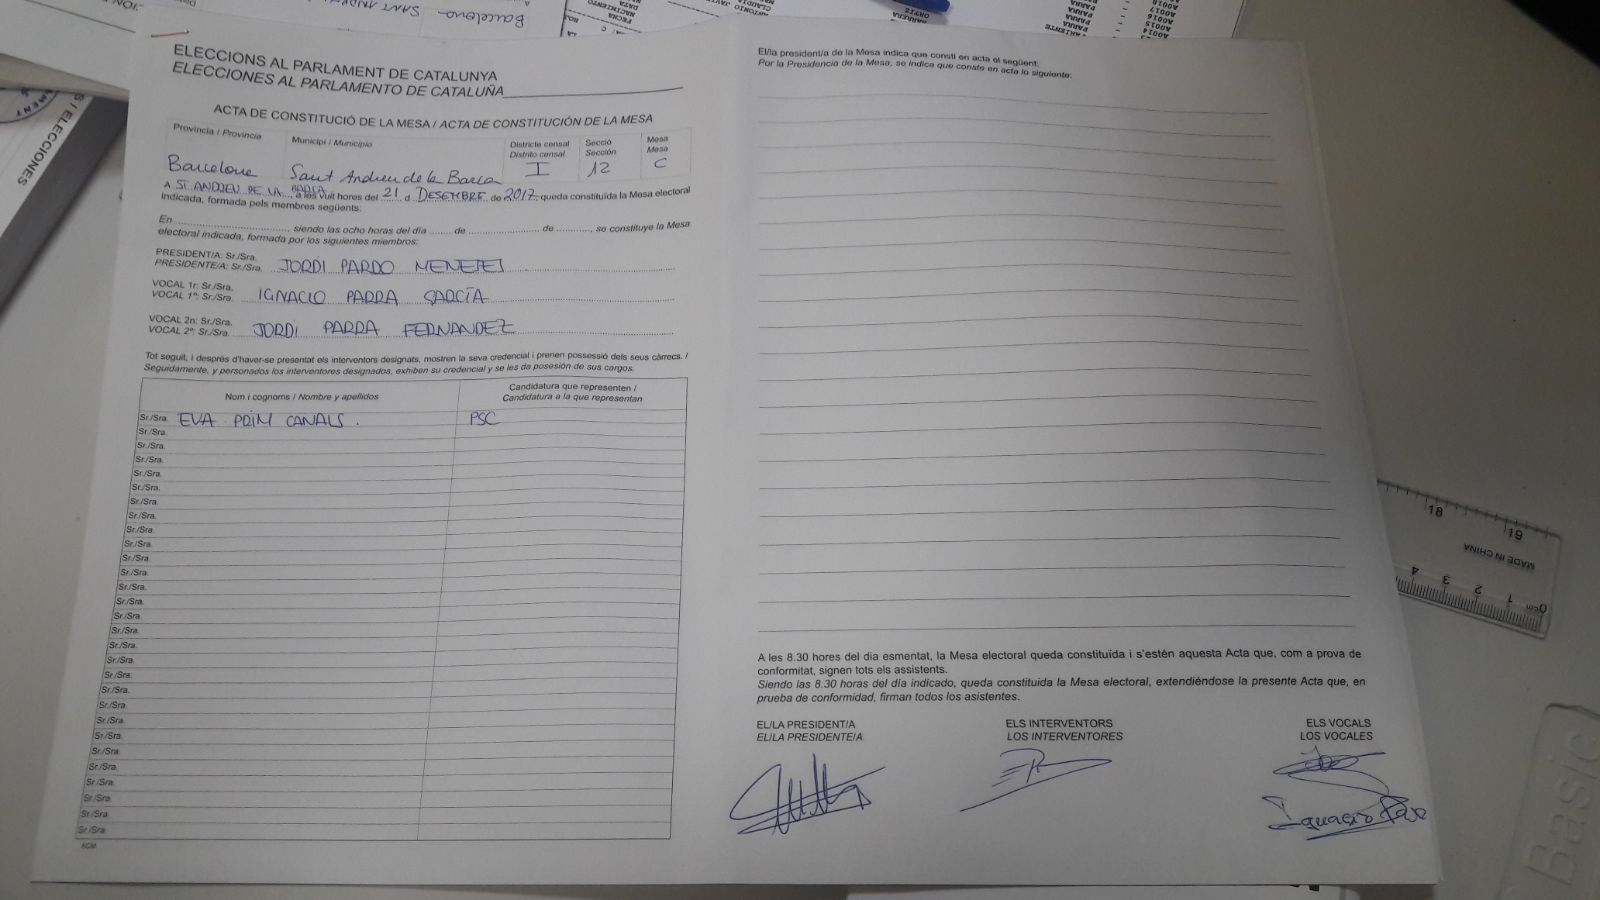 ELECCIONS AL PARLAMENT DE CATALUNYA
ELECCIONES AL PARLAMENTO DE CATALUÑA
ACTA DE CONSTITUCIÓ DE LA MESA / ACTA DE CONSTITUCIÓN DE LA MESA
Provincia / Provincia Municipi / Municipio Districte censal Secció Mesa
Distrito censal Sección Mesa
Barcelona Sant Andreu de la Barca I 12 C
A ST. ANDREU DE LA BARCA, a les vuit hores del 21 d DESEMBRE de 2017 queda constituïda la Mesa electoral
indicada, formada pels membres següents:
En, siendo las ocho horas del día de de, se constituye la Mesa
electoral indicada, formada por los siguientes miembros:
PRESIDENT/A: Sr./Sra.
PRESIDENTE/A: Sr./Sra. JORDI PARDO
VOCAL 1r: Sr./Sra.
VOCAL 1º: Sr./Sra. IGNACIO PARRA GARCÍA
VOCAL 2n: Sr./Sra.
VOCAL 2º: Sr./Sra. JORDI PARRA FERNANDEZ
Tot seguit, i després d'haver-se presentat els interventors designats, mostren la seva credencial i prenen possessió dels seus càrrecs. /
Seguidamente, y personados los interventores designados, exhiben su credencial y se les da posesión de sus cargos.
Nom i cognoms / Nombre y apellidos Candidatura que representen /
Candidatura a la que representan
Sr./Sra. EVA PRIM CANALS. PSC
Sr./Sra.
Sr./Sra.
Sr./Sra.
Sr./Sra.
Sr./Sra.
Sr./Sra.
Sr./Sra.
Sr./Sra.
Sr./Sra.
Sr./Sra.
Sr./Sra.
Sr./Sra.
Sr./Sra.
Sr./Sra.
Sr./Sra.
Sr./Sra.
Sr./Sra.
Sr./Sra.
Sr./Sra.
Sr./Sra.
Sr./Sra.
Sr./Sra.
Sr./Sra.
Sr./Sra.
Sr./Sra.
Sr./Sra.
Sr./Sra.
Sr./Sra.
El/la president/a de la Mesa indica que consti en acta el següent:
Por la Presidencia de la Mesa, se indica que conste en acta lo siguiente:
A les 8.30 hores del dia esmentat, la Mesa electoral queda constituïda i s'estén aquesta Acta que, com a prova de
conformitat, signen tots els assistents.
Siendo las 8.30 horas del día indicado, queda constituida la Mesa electoral, extendiéndose la presente Acta que, en
prueba de conformidad, firman todos los asistentes.
EL/LA PRESIDENT/A ELS INTERVENTORS ELS VOCALS
EL/LA PRESIDENTE/A LOS INTERVENTORES LOS VOCALES
Ignacio
Barcelona
SANT ANDREU
FECHA
NACIMIENTO
DATA
ORTIZ
BARRERA
CLAUDIA
ANTONIO JAVIER
PARIENTE
PARRA
PARRA
PARRA
PARRA
A0014
A0015
A0016
A0017
A0018
S / ELECCIONES
18 19
MADE IN CHINA
4 3 2 1 0cm
Basic